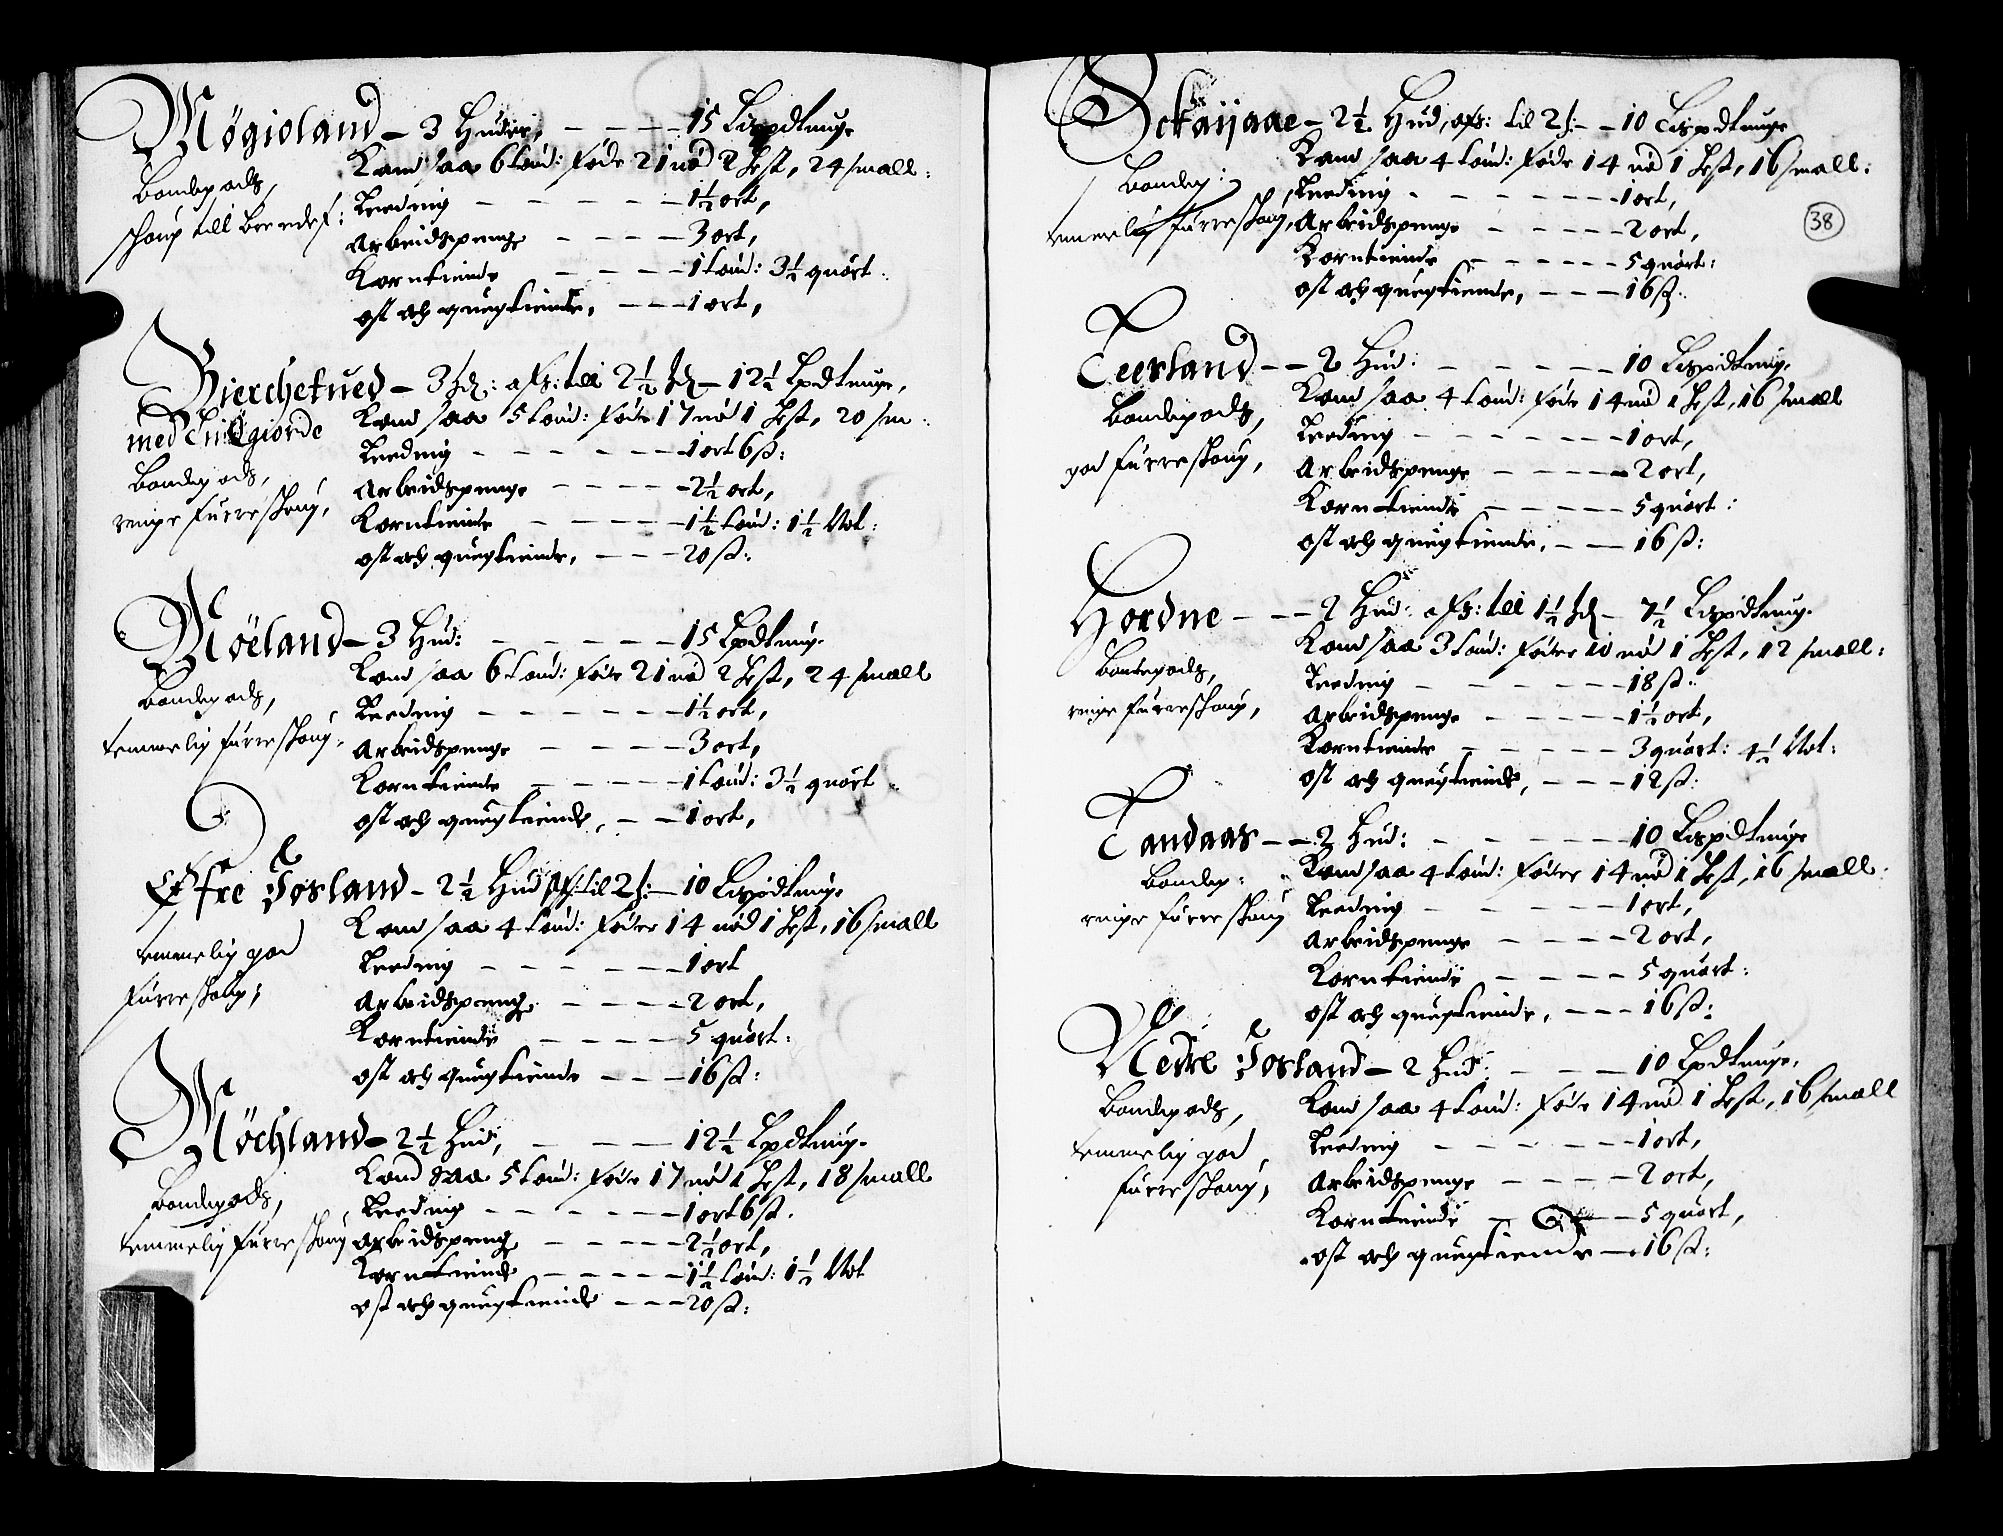 Møgioland – 3 Huder, – – – 15 Lispdtnnge
Kand saa 6 tønd: føde 21 nød 2 Hest, 24 small:
Bondegods,
Leeding – – – – – – 1½ ort,
schoug till
Arbeidspenge – – – – 3 ort,
Korntiende – – – – 1 tønd: 3½ quort:
ost och quegtiende, – – 1 ort,
Bierchetued – 3 hd: afs: till 2½ hd – 12½ Lpdtunge,
med
Kand saa 5 tønd: føde 17 nød 1 Hest, 20 sm:
Leeding – – – – – – 1 ort 6 ß:
Bondegods,
Arbeidspenge – – – – 2½ ort,
ringe furreschoug,
Korntiende – – – – 1½ tønd: 1½ Vot:
ost och quegtiende, – – – 20 ß:
Møeland – 3 Hud: – – – – – 15 Lpdtung.
Kand saa 6 tønd: føde 21 nød 2 Hest, 24 small
Bondegods,
Leeding – – – – – – 1½ ort,
temmelig furreschoug,
Arbeidspenge – – – – 3 ort,
Korntiende – – – – – 1 tønd: 3½ quort
ost och quegtiende, – – 1 ort,
Øfre Josland – 2½ Hud afs: til 2 h: – 10 Lispdtunge
Kand saa 4 tønd: føder 14 nød 1 Hest, 16 small
temmelig god
Leeding – – – – – – 1 ort
furreschoug,
Arbeidspenge – – – – 2 ort,
Korntiende – – – – 5 quort:
ost och quegtiende – – – 16 ß:
Møchland – 2½ Hud, – – – 12½ Lpdtung.
Kand saa 5 tønd: føde 17 nød 1 Hest, 18 small
Bondegods,
Leeding – – – – – – 1 ort 6 ß.
temmelig furreschoug
Arbeidspenge – – – – – 2½ ort,
Korntiende – – – – – 1½ tønd: 1½ Vot
ost och quegtiende – – – 20 ß:
Sckaijaae – 2½ Hud, afs: til 2 h: – – 10 Lispdtunge
Kand saa 4 tønd: føde 14 nød 1 Hest, 16 small:
Bondeg:
Leeding – – – – – – 1 ort,
38
temmelig furreschoug,
Arbeidspenge – – – – – 2 ort,
Korntiende – – – – – – 5 quort:
ost och quegtiende, – – – 16 ß:
Teersland – – 2 Hud: – – – – – 10 Lispdtung.
Kand saa 4 tønd: føde 14 nød 1 Hest, 16 small
Bondegods,
Leeding – – – – – – 1 ort,
god furreschoug,
Arbeidspenge – – – – – 2 ort,
Korntiende – – – – – 5 quort:
ost och quegtiende, – – 16 ß:
Hordne – – – 2 Hud: afs: till 1½ hd – 7½ Lispdtung.
Kand saa 3 tønd: føder 10 nød 1 Hest, 12 small:
Bondegods,
Leeding – – – – – – 18 ß:
ringe furreschoug,
Arbeidspenge – – – – – 1½ ort,
Korntiende – – – – – 3 quort: 4½ Vot:
ost och quegtiende, – – – 12 ß:
Tandaas – – 2 Hud: – – – – – 10 Lispdtunge
Kand saa 4 tønd: føder 14 nød 1 Hest, 16 small:
Bondeg:
ringe furreschoug
Leeding – – – – – – 1 ort,
Arbeidspenge – – – – 2 ort,
Korntiende – – – – – 5 quort:
ost och quegtiende, – – – 16 ß:
Nedre Josland – 2 Hud: – – – 10 Lpdtunge,
Kand saa 4 tønd: føde 14 nød 1 Hest, 16 small
Bondegods,
Leeding – – – – – – 1 ort,
temmelig god
Arbeidspenge – – – – 2 ort,
furreschoug,
Korntiende – – – 5 quort,
ost och quegtiende – 16 ß: